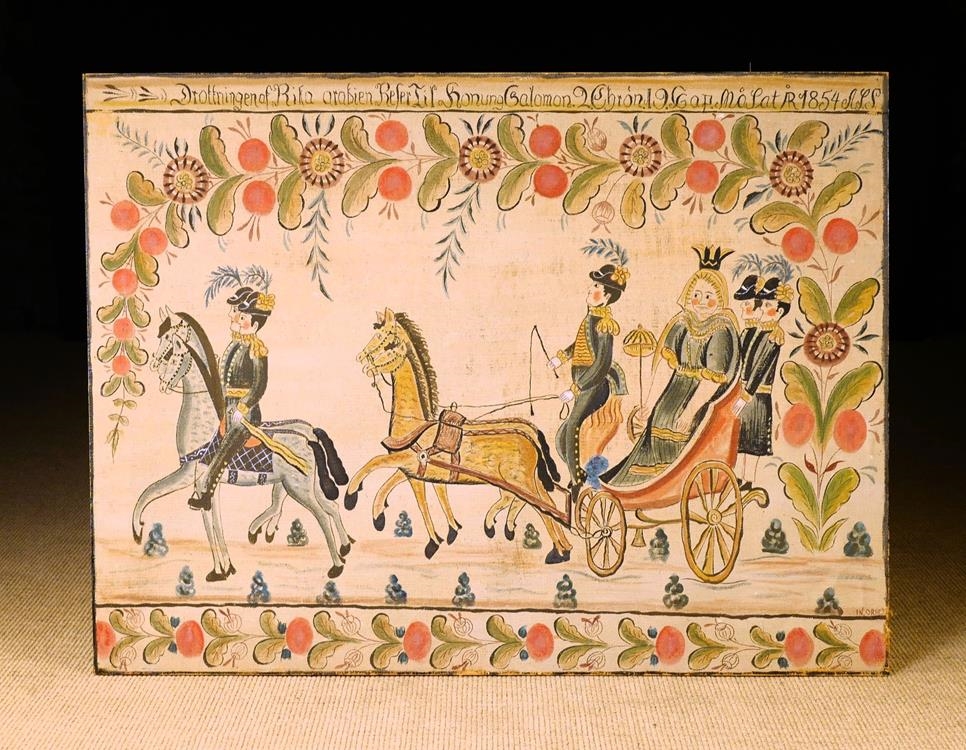 Drottningen af Rika arabien Reser Til Konung Salomon. 2 Chrön. 19 Cap. Målat År 1854 A.L.S